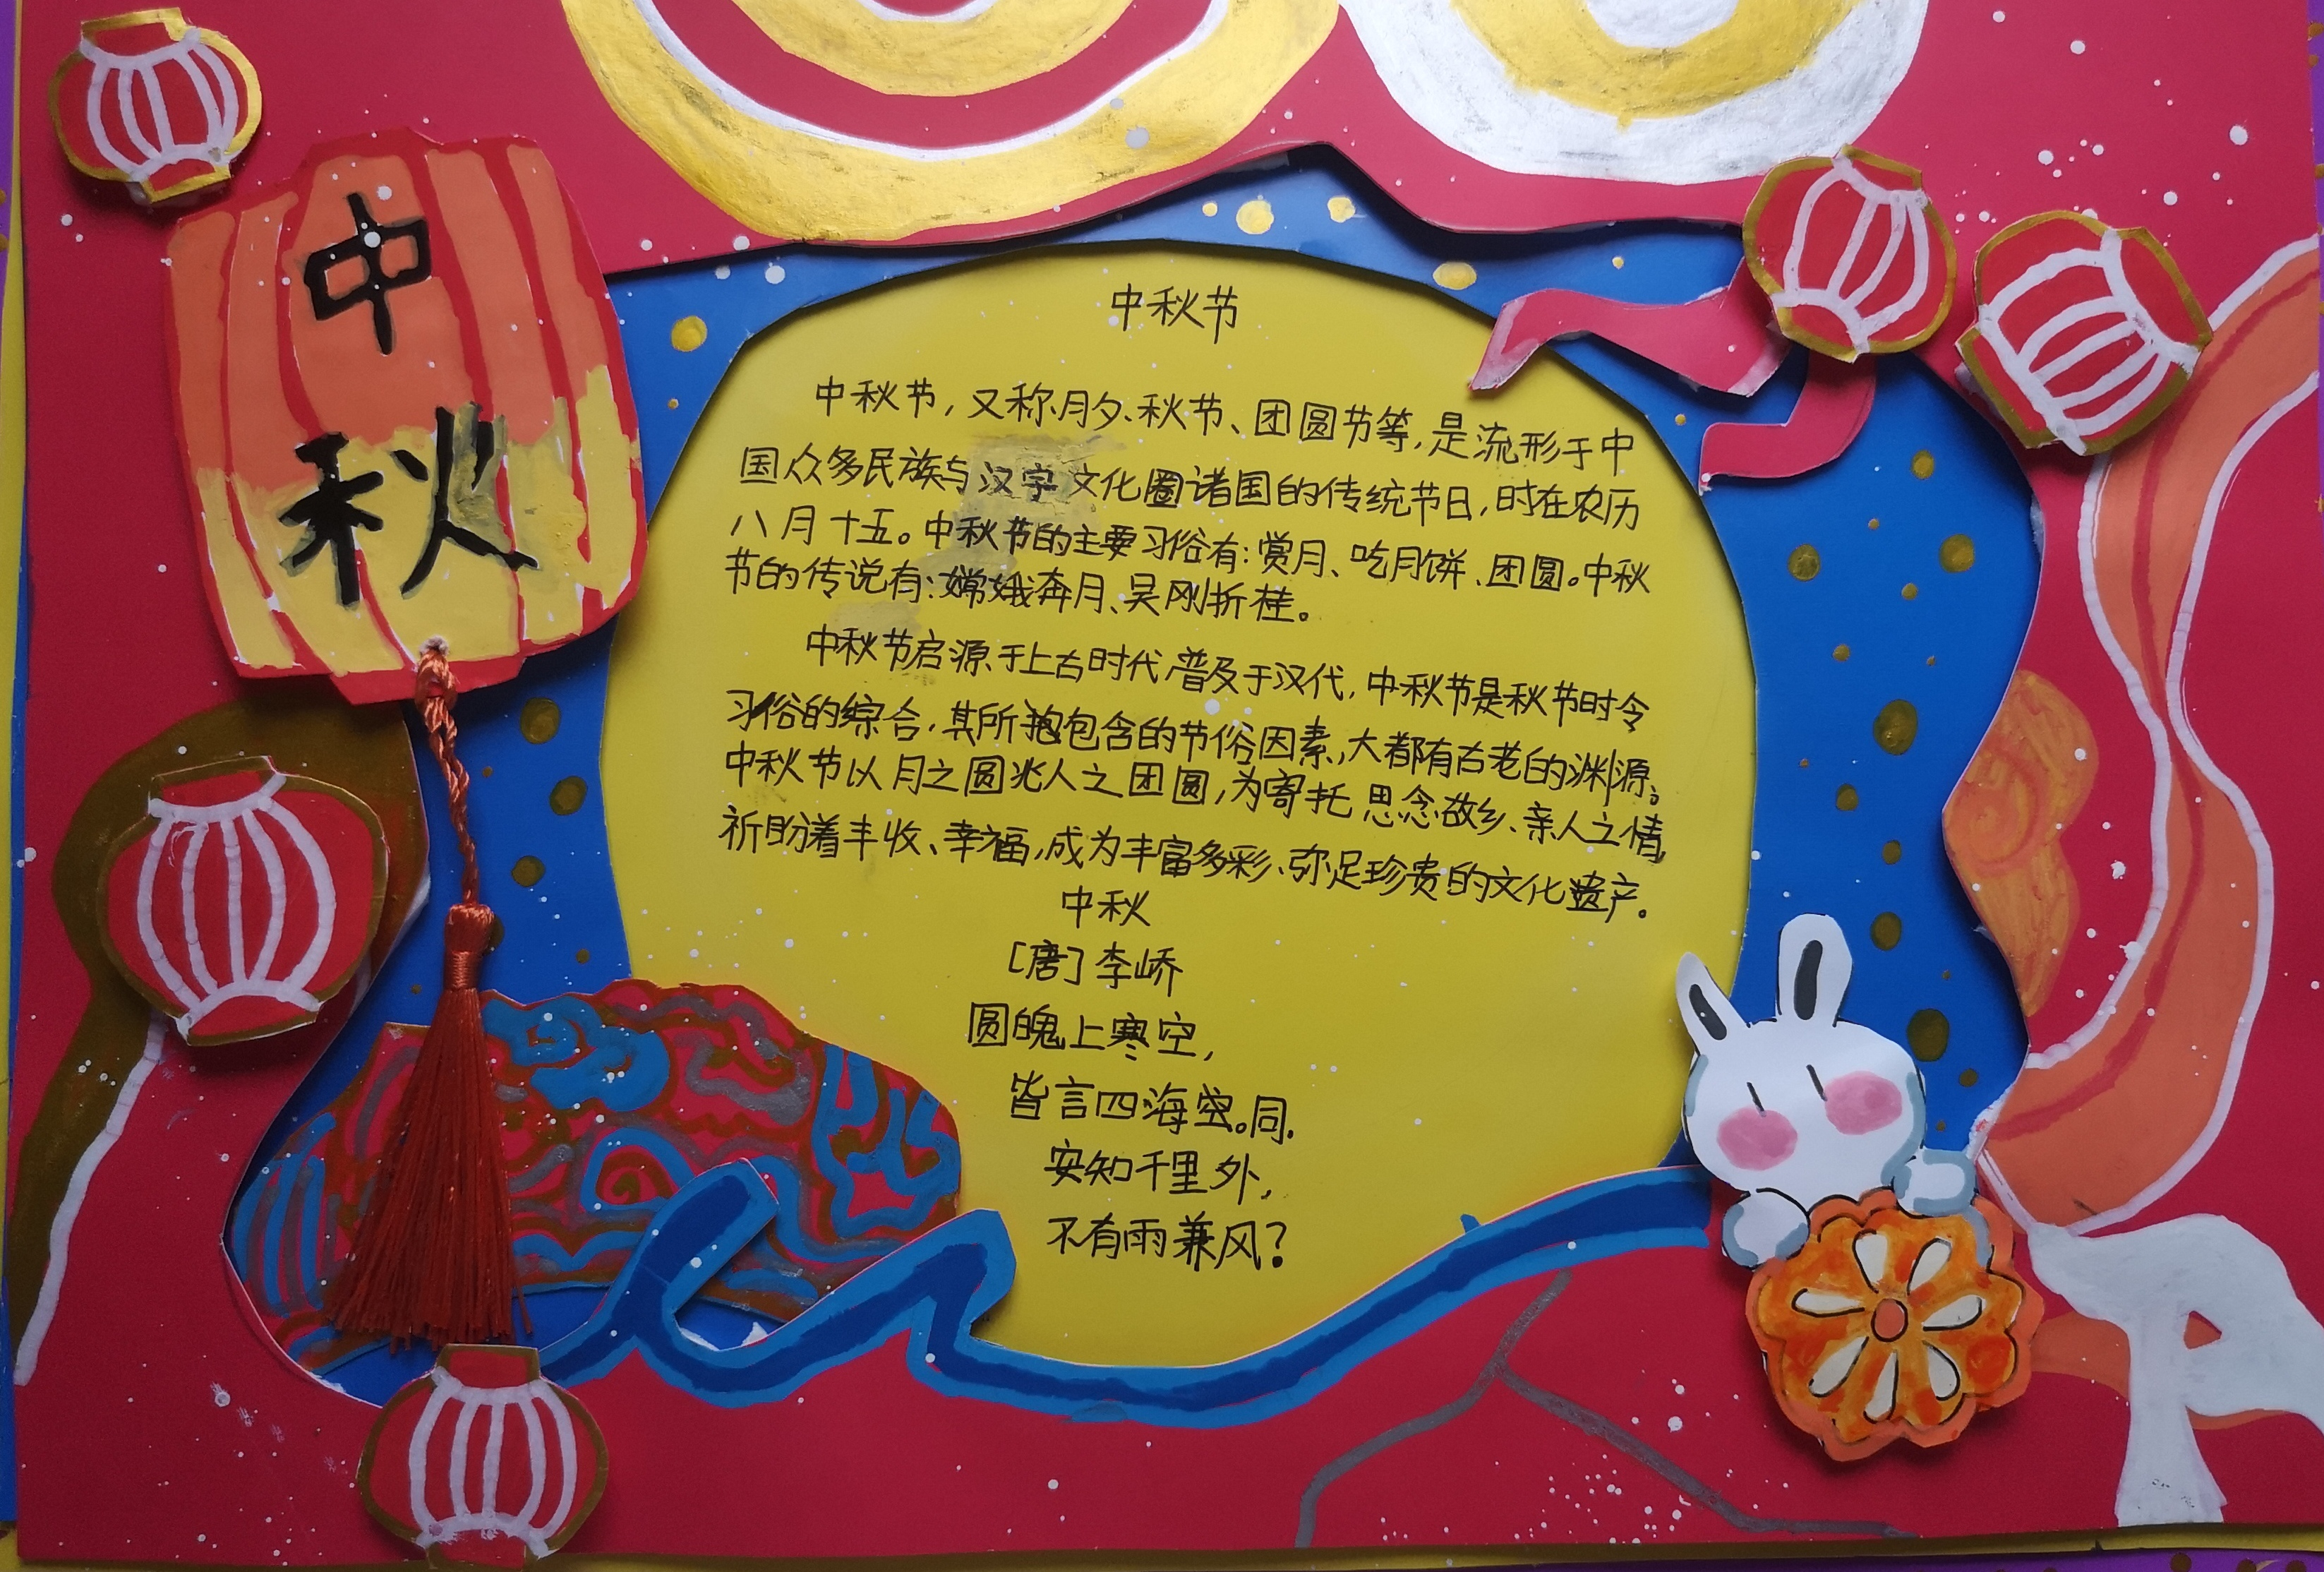 中
秋
中秋节
中秋节，又称月夕、秋节、团圆节等，是流形于中
国众多民族与汉字文化圈诸国的传统节日，时在农历
八月十五。中秋节的主要习俗有：赏月、吃月饼、团圆。中秋
节的传说有：嫦娥奔月、吴刚折桂。
中秋节启源于上古时代，普及于汉代，中秋节是秋节时令
习俗的综合，其所抱包含的节俗因素，大都有古老的渊源。
中秋节以月之圆兆人之团圆，为寄托思念故乡、亲人之情，
祈盼着丰收、幸福，成为丰富多彩、弥足珍贵的文化遗产。
中秋
［唐］李峤
圆魄上寒空，
皆言四海空。同.
安知千里外，
不有雨兼风？